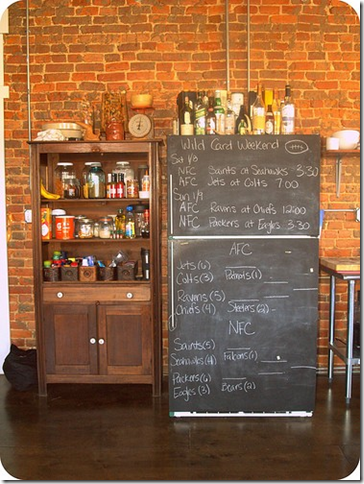 Wild Card Weekend
Sat 1/8
NFC Saints on Seahawks 3:30
AFC Jets at Colts 7:00
Sun 1/9
AFC Ravins at Chiefs 12:00
NFC Packers at Eagles 3:30
AFC
Jets (6)
Colts (3) Patriots (1)
Ravens (5)
Chiefs (4) Steelers (2)
NFC
Saints (5)
Seahawks (4) Falcons (1)
Packers (6)
Eagles (3) Bears (2)